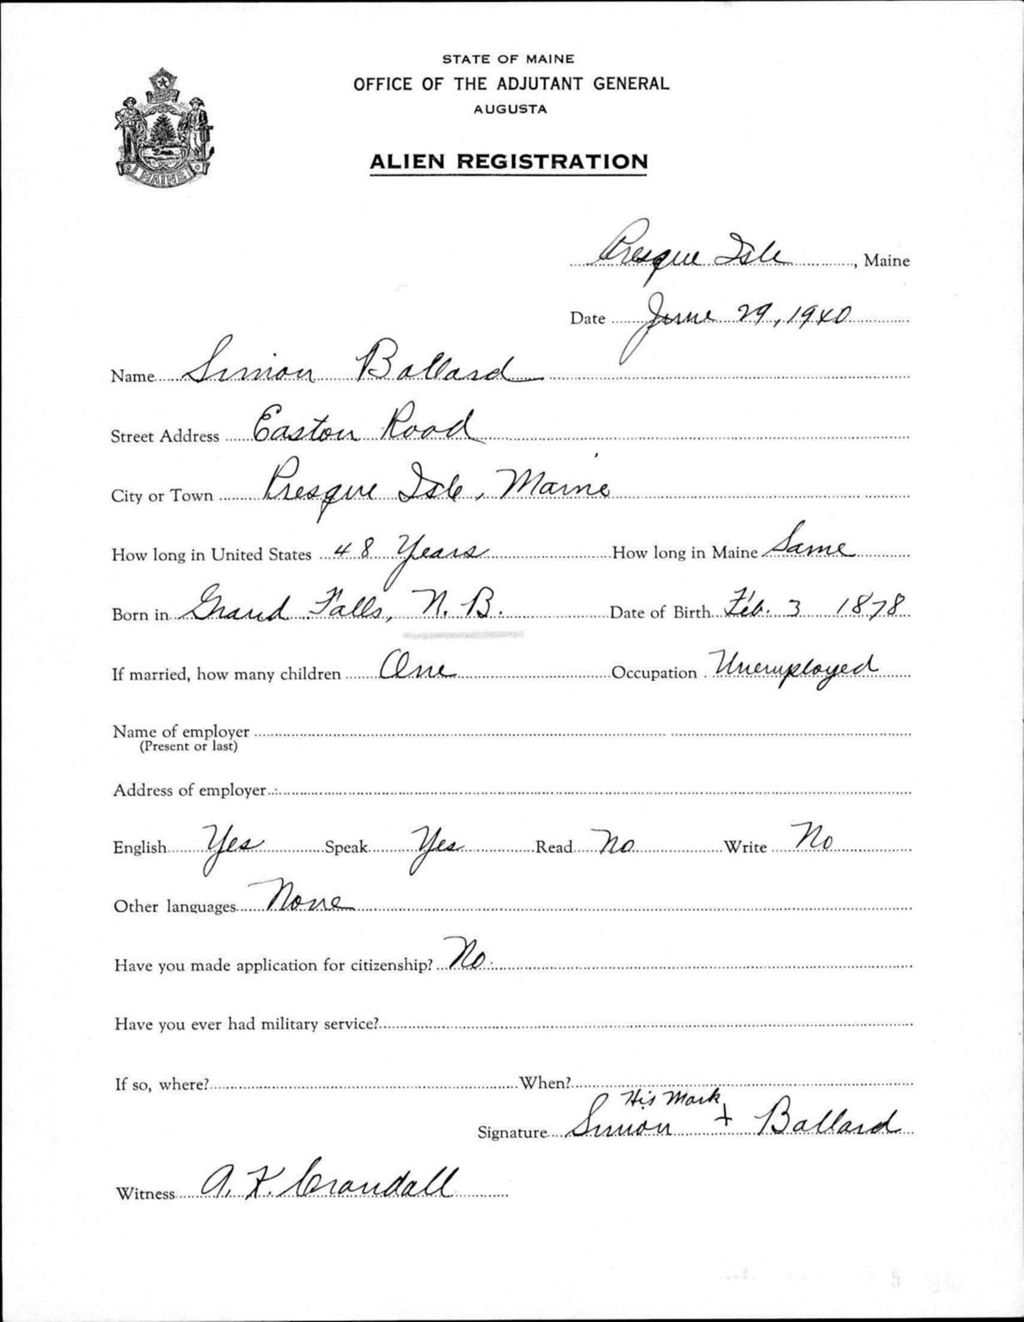 STATE OF MAINE
OFFICE OF THE ADJUTANT GENERAL
AUGUSTA
ALIEN REGISTRATION
MAINE
Presque Isle, Maine
Date June 29, 1940
Name Simon Ballard
Street Address Easton Road
City or Town Presque Isle, Maine
How long in United States 48 Years How long in Maine Same
Born in Grand Falls, N. B. Date of Birth Feb. 3 1878
If married, how many children One Occupation Unemployed
Name of employer
(Present or last)
Address of employer
English Yes Speak Yes Read No Write No
Other languages None
Have you made application for citizenship? No.
Have you ever had military service?
If so, where? When?
His Mark
Signature Simon + Ballard
Witness A. F. Crandall